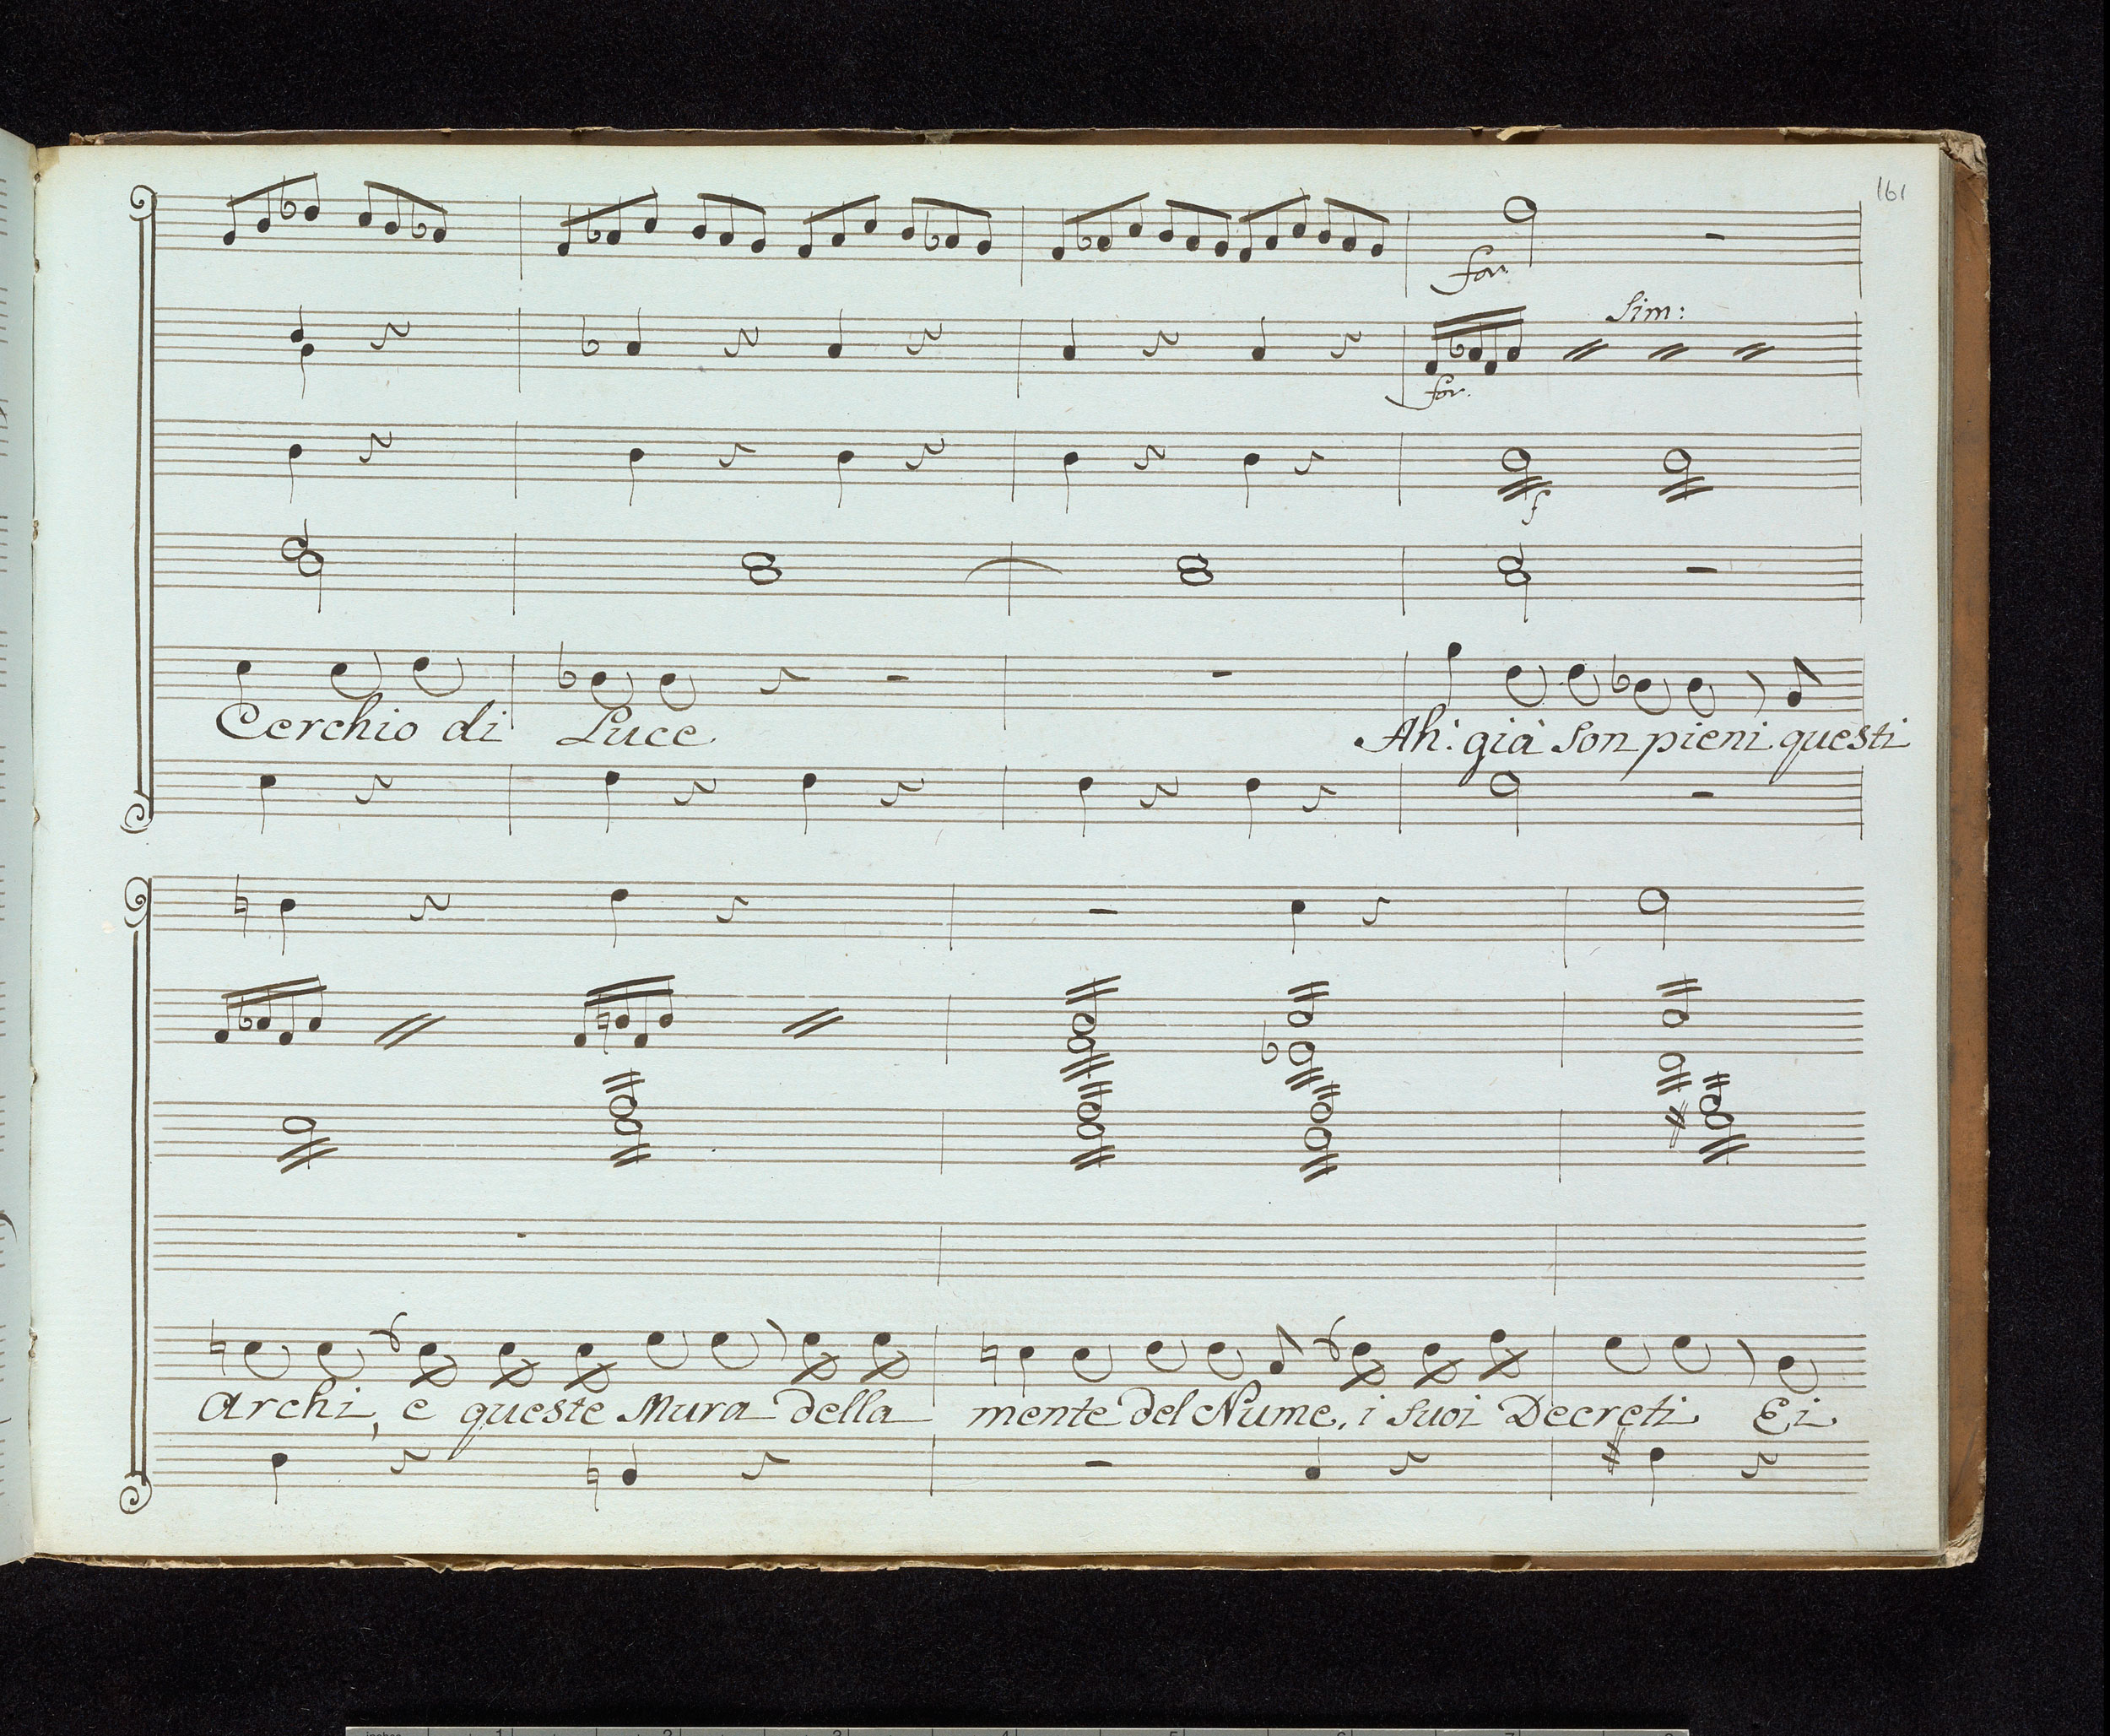 161
for.
Sim:
for.
f
Cerchio di Luce. Ah: già son pieni questi
archi, e queste Mura della mente del Nume, i suoi Decreti Ei
inches 1 2 3 4 5 6 7 8